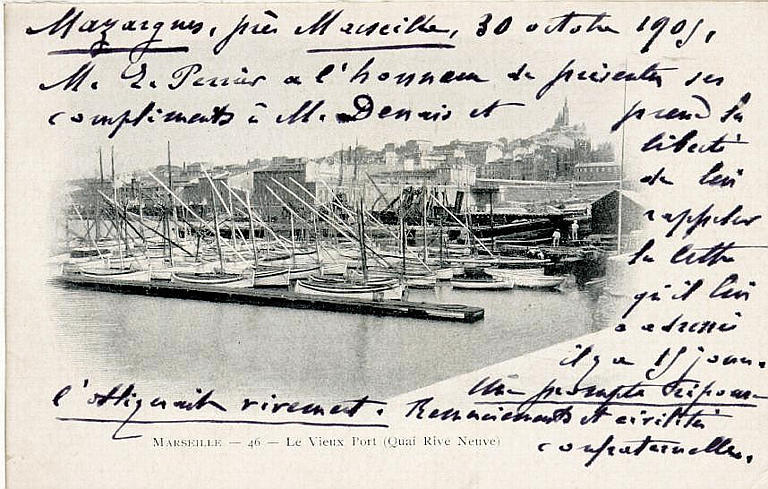 Mazargues, près Marseille, 30 octobre 1905,
M. E. Perrier a l'honneur de présenter ses
compliments à M. Denais et prend la
liberté
de lui
rappeler
la lettre
qu'il lui
a adressée
il y a 15 jours.
Une prompte réponse
l'obligerait vivement. Remerciements et civilités
confraternelles.
MARSEILLE — 46 — LE VIEUX PORT (QUAI RIVE NEUVE)